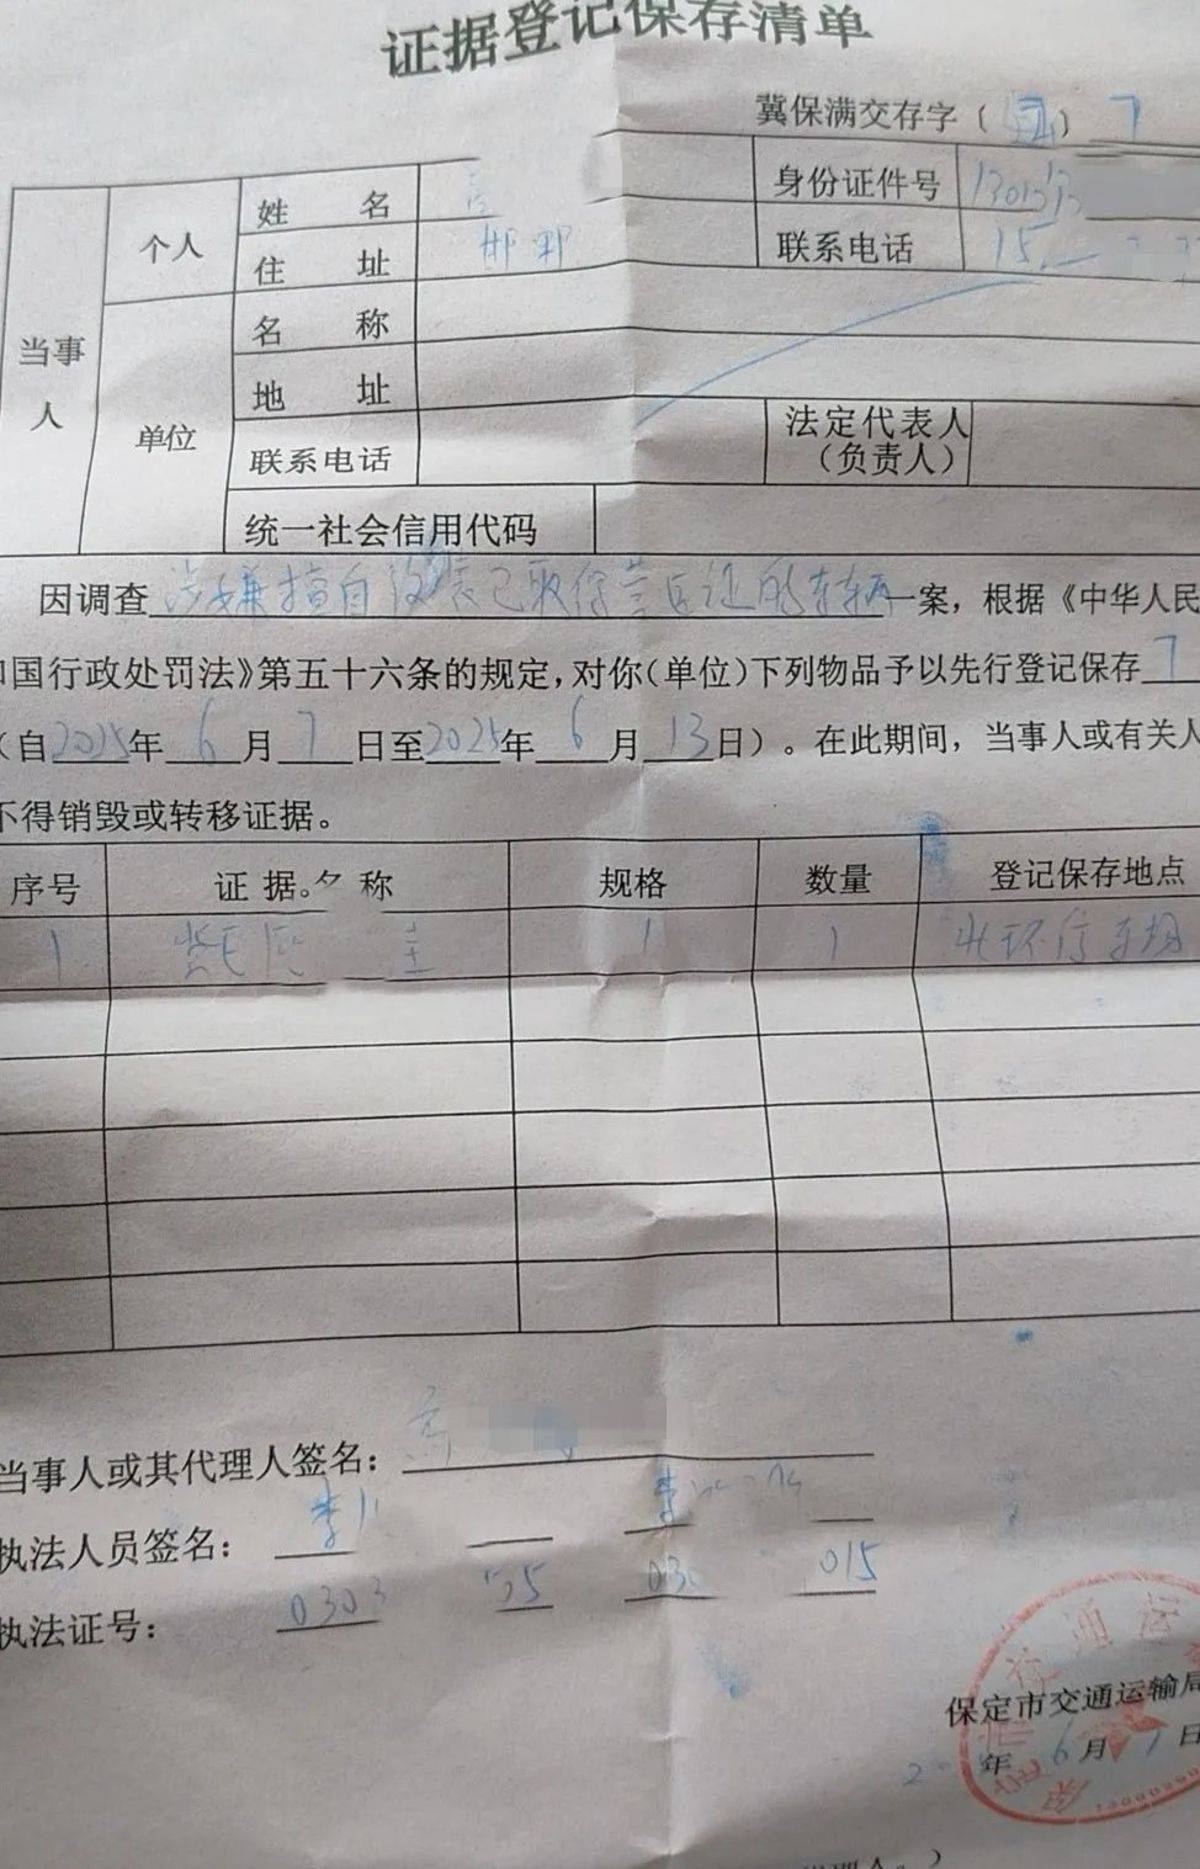 证据登记保存清单
冀保满交存字( ) 7
当事人
个人
姓名
身份证件号
住址 邯郸
联系电话 15
单位
名称
地址
联系电话
法定代表人
(负责人)
统一社会信用代码
因调查涉嫌擅自改装已取得营运证的车辆一案，根据《中华人民
国行政处罚法》第五十六条的规定,对你(单位)下列物品予以先行登记保存7
(自2025年6月7日至2025年6月13日)。在此期间，当事人或有关人
不得销毁或转移证据。
序号 证据名称 规格 数量 登记保存地点
1 1 1 北环停车场
当事人或其代理人签名：
执法人员签名： 李 李
执法证号： 0303 015
保定市交通运输局
年6月7日